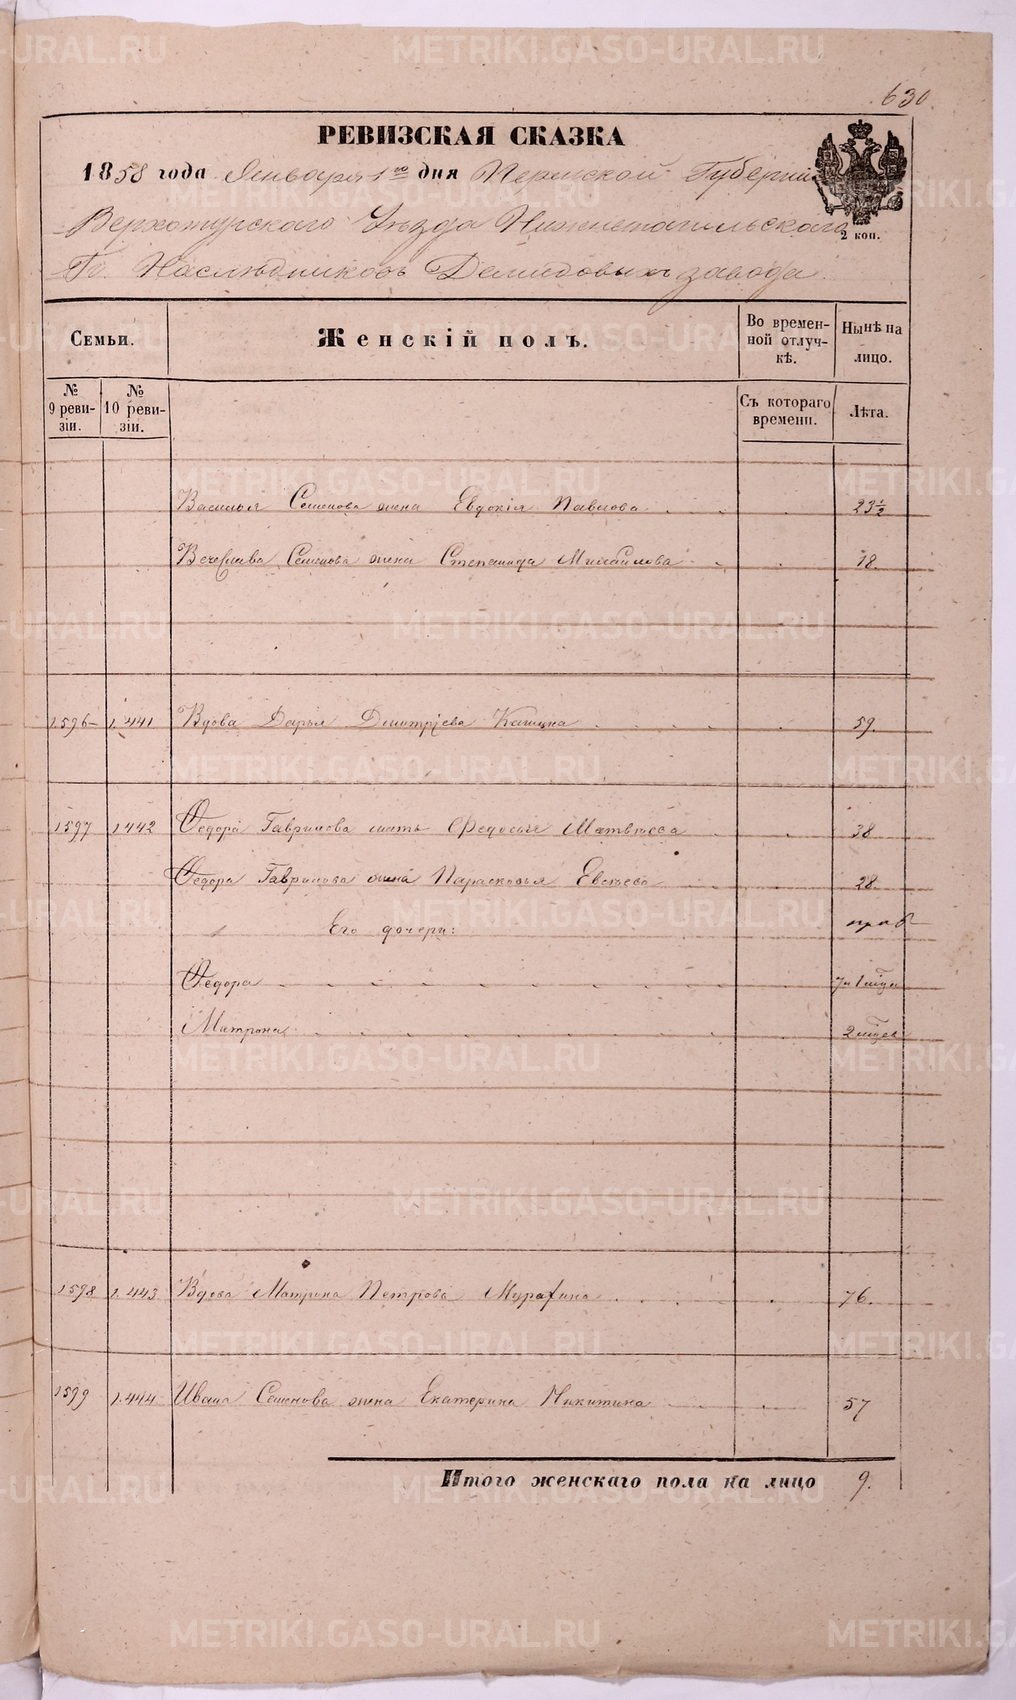 630.
РЕВИЗСКАЯ СКАЗКА
1858 года Января 1го дня Пермской Губерніи
Верхотурскаго Уѣзда Нижнетагильскаго
Гг. Наслѣдниковъ Демидовыхъ завода
2 коп.
Семьи. Женскій полъ. Во временной отлучкѣ. Нынѣ на лицо.
№ 9 ревизіи. № 10 ревизіи. Съ котораго времени. Лѣта.
Василья Семенова жена Евдокія Павлова 23 1/2
Вечеслава Семенова жена Степанида Михайлова 18.
1596 1.441 Вдова Дарья Дмитріева 59.
1597 1442 Федора Гаврилова мать Федосья Матвѣева 38
Федора Гаврилова жена Парасковья Евсѣева 28.
Его дочери:
Федора
Матрона
1598 1.443 Вдова Матрона Петрова 76.
1599 1.444 Ивана Семенова жена Екатерина Никитина 57
Итого женскаго пола на лицо 9.
METRIKI.GASO-URAL.RU